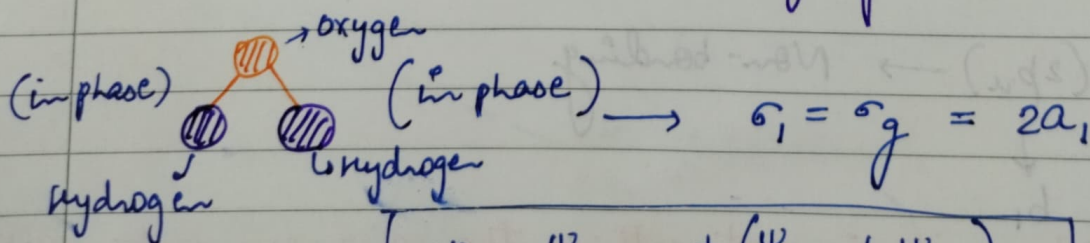 → oxygen
(in phase) (in phase) ⟶ σ₁ = σg = 2a₁
Hydrogen Hydrogen